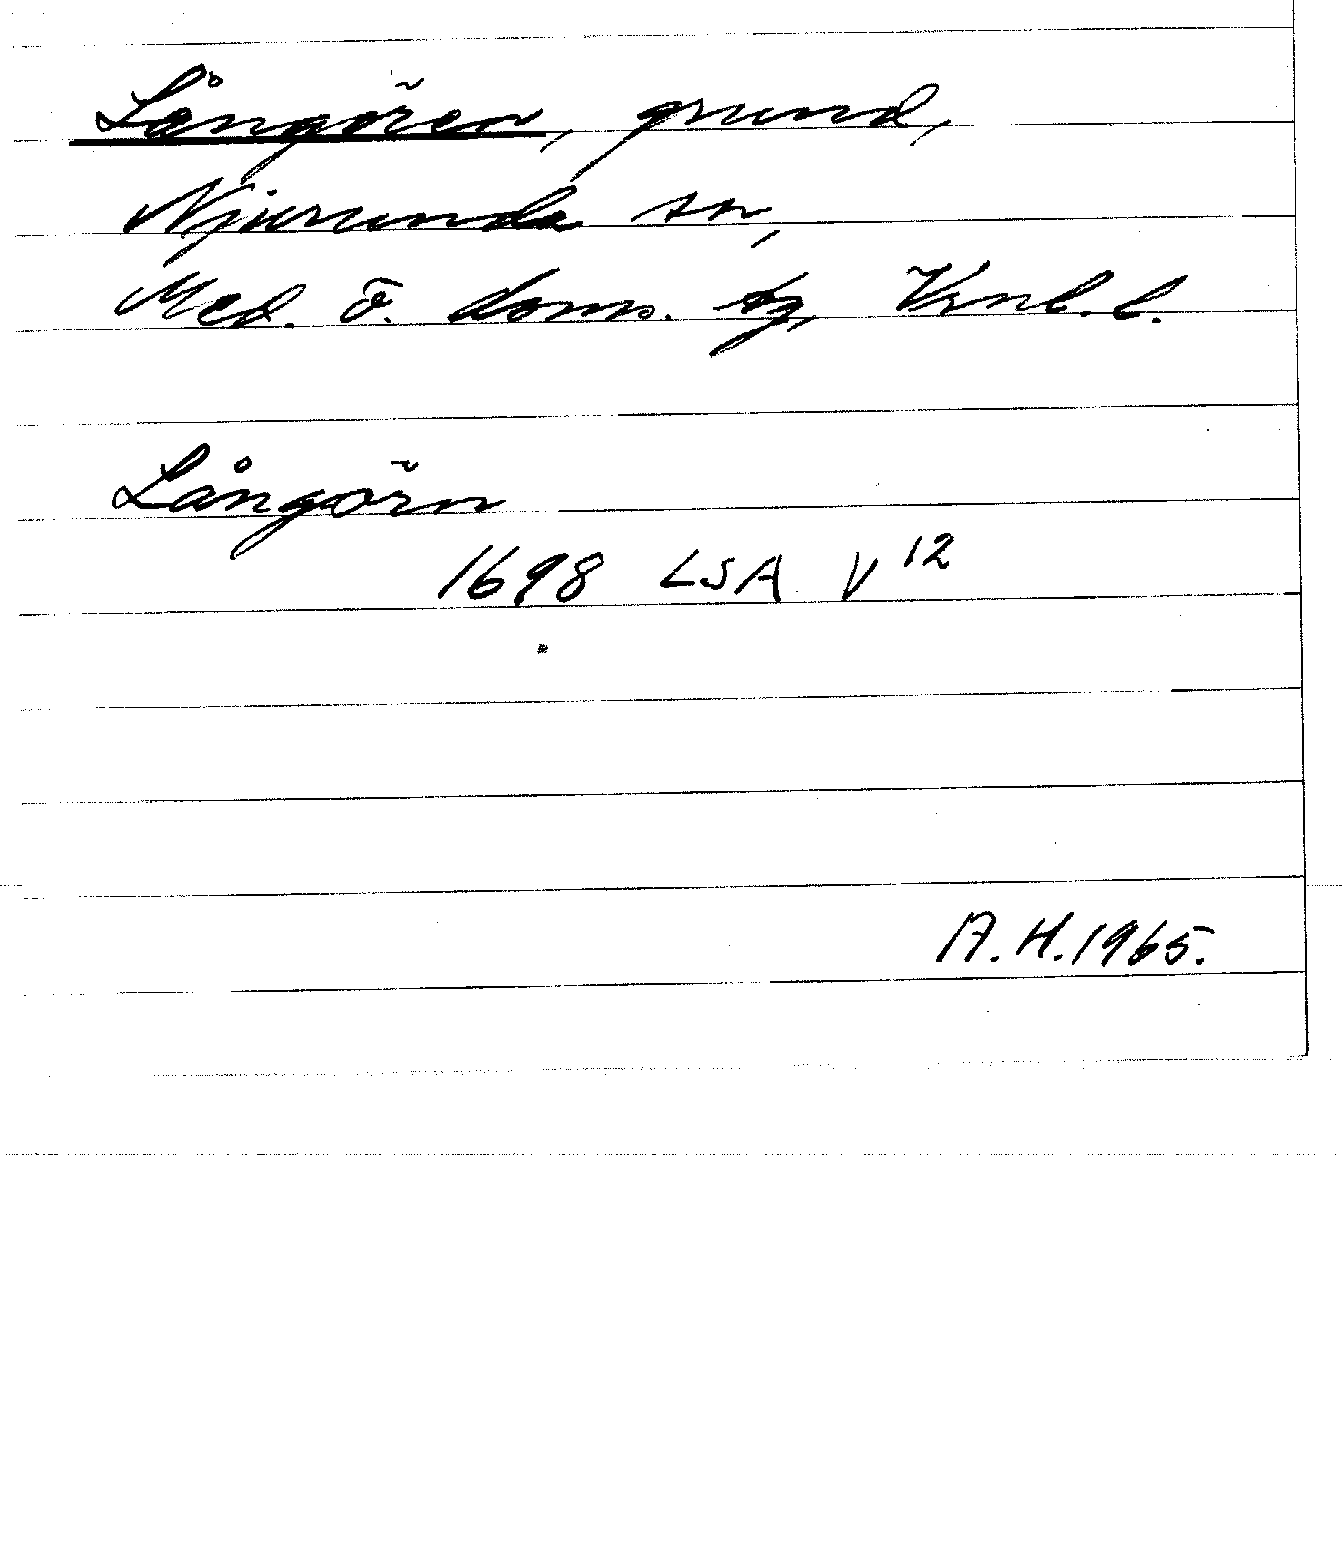 Långören, grund,
Njurunda sn,
Med. ö. doms. tg, Vrnl. l.
Långörn
1698 LSA V 12
A. H. 1965.